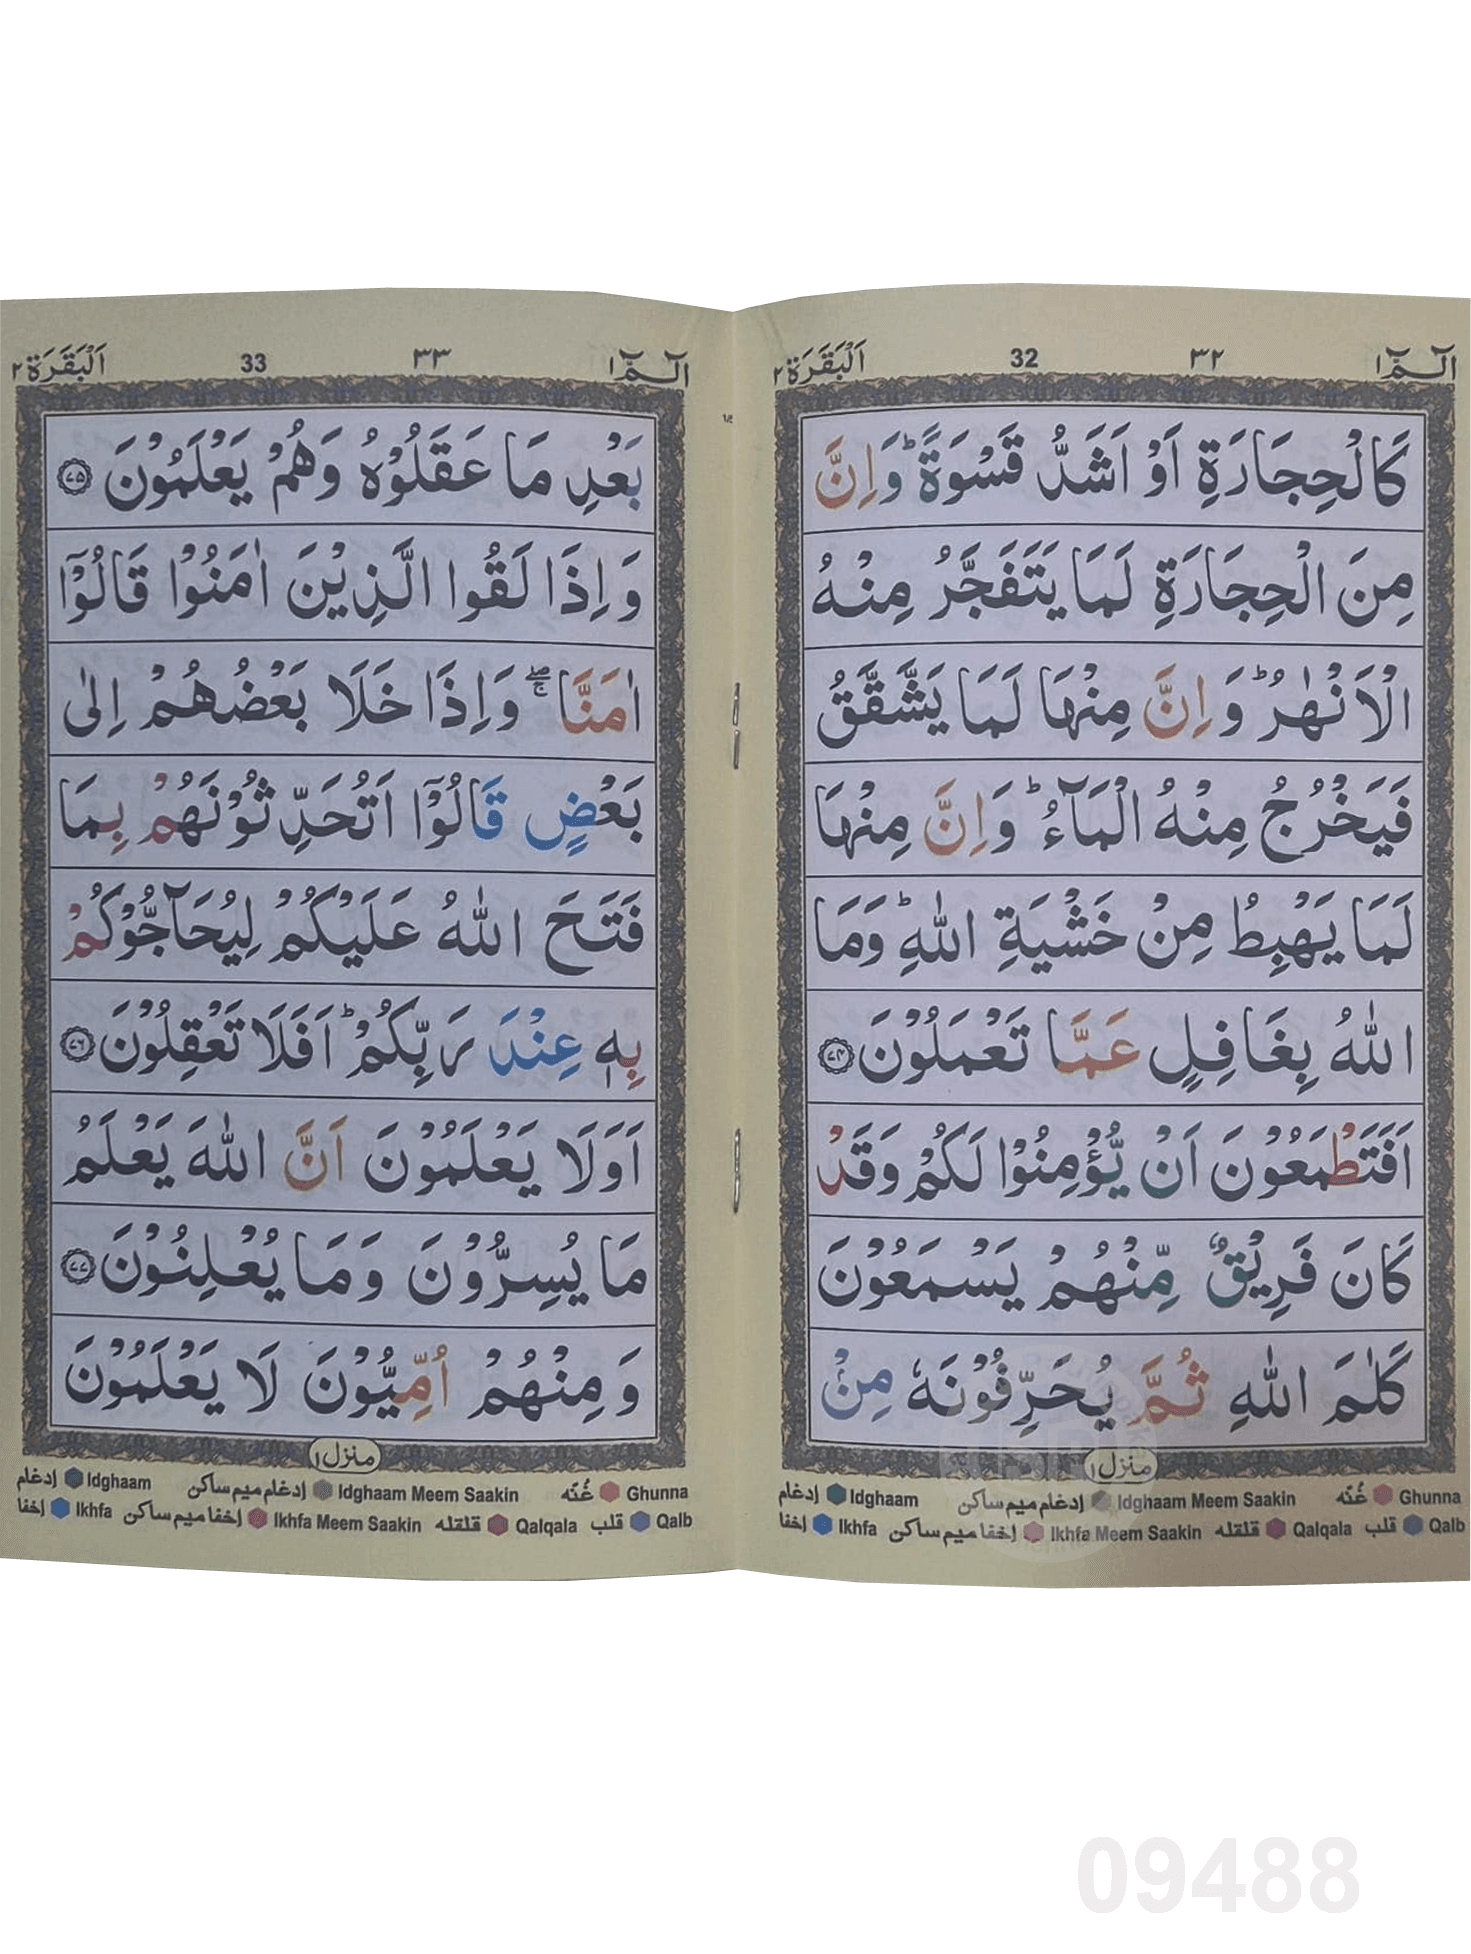 الٓـمّٓ ۱ ۳۲ 32 اَلْبَقَرَة ۲
كَالْحِجَارَةِ اَوْ اَشَدُّ قَسْوَةً ؕ وَاِنَّ
مِنَ الْحِجَارَةِ لَمَا يَتَفَجَّرُ مِنْهُ
الْاَنْهٰرُ ؕ وَاِنَّ مِنْهَا لَمَا يَشَّقَّقُ
فَيَخْرُجُ مِنْهُ الْمَآءُ ؕ وَاِنَّ مِنْهَا
لَمَا يَهْبِطُ مِنْ خَشْيَةِ اللّٰهِ ؕ وَمَا
اللّٰهُ بِغَافِلٍ عَمَّا تَعْمَلُوْنَ ۷۴
اَفَتَطْمَعُوْنَ اَنْ يُّؤْمِنُوْا لَكُمْ وَقَدْ
كَانَ فَرِيْقٌ مِّنْهُمْ يَسْمَعُوْنَ
كَلٰمَ اللّٰهِ ثُمَّ يُحَرِّفُوْنَهٗ مِنْۢ
منزل ۱
Ghunna غُنّه Idghaam Meem Saakin إدغام ميم ساكن Idghaam إدغام
Qalb قلب Qalqala قلقله Ikhfa Meem Saakin إخفا ميم ساكن Ikhfa إخفا
الٓـمّٓ ۱ ۳۳ 33 اَلْبَقَرَة ۲
بَعْدِ مَا عَقَلُوْهُ وَهُمْ يَعْلَمُوْنَ ۷۵
وَاِذَا لَقُوا الَّذِيْنَ اٰمَنُوْا قَالُوْۤا
اٰمَنَّا ۖۚ وَاِذَا خَلَا بَعْضُهُمْ اِلٰى
بَعْضٍ قَالُوْۤا اَتُحَدِّثُوْنَهُمْ بِمَا
فَتَحَ اللّٰهُ عَلَيْكُمْ لِيُحَآجُّوْكُمْ
بِهٖ عِنْدَ رَبِّكُمْ ؕ اَفَلَا تَعْقِلُوْنَ ۷۶
اَوَلَا يَعْلَمُوْنَ اَنَّ اللّٰهَ يَعْلَمُ
مَا يُسِرُّوْنَ وَمَا يُعْلِنُوْنَ ۷۷
وَمِنْهُمْ اُمِّيُّوْنَ لَا يَعْلَمُوْنَ
منزل ۱
Ghunna غُنّه Idghaam Meem Saakin إدغام ميم ساكن Idghaam إدغام
Qalb قلب Qalqala قلقله Ikhfa Meem Saakin إخفا ميم ساكن Ikhfa إخفا
09488